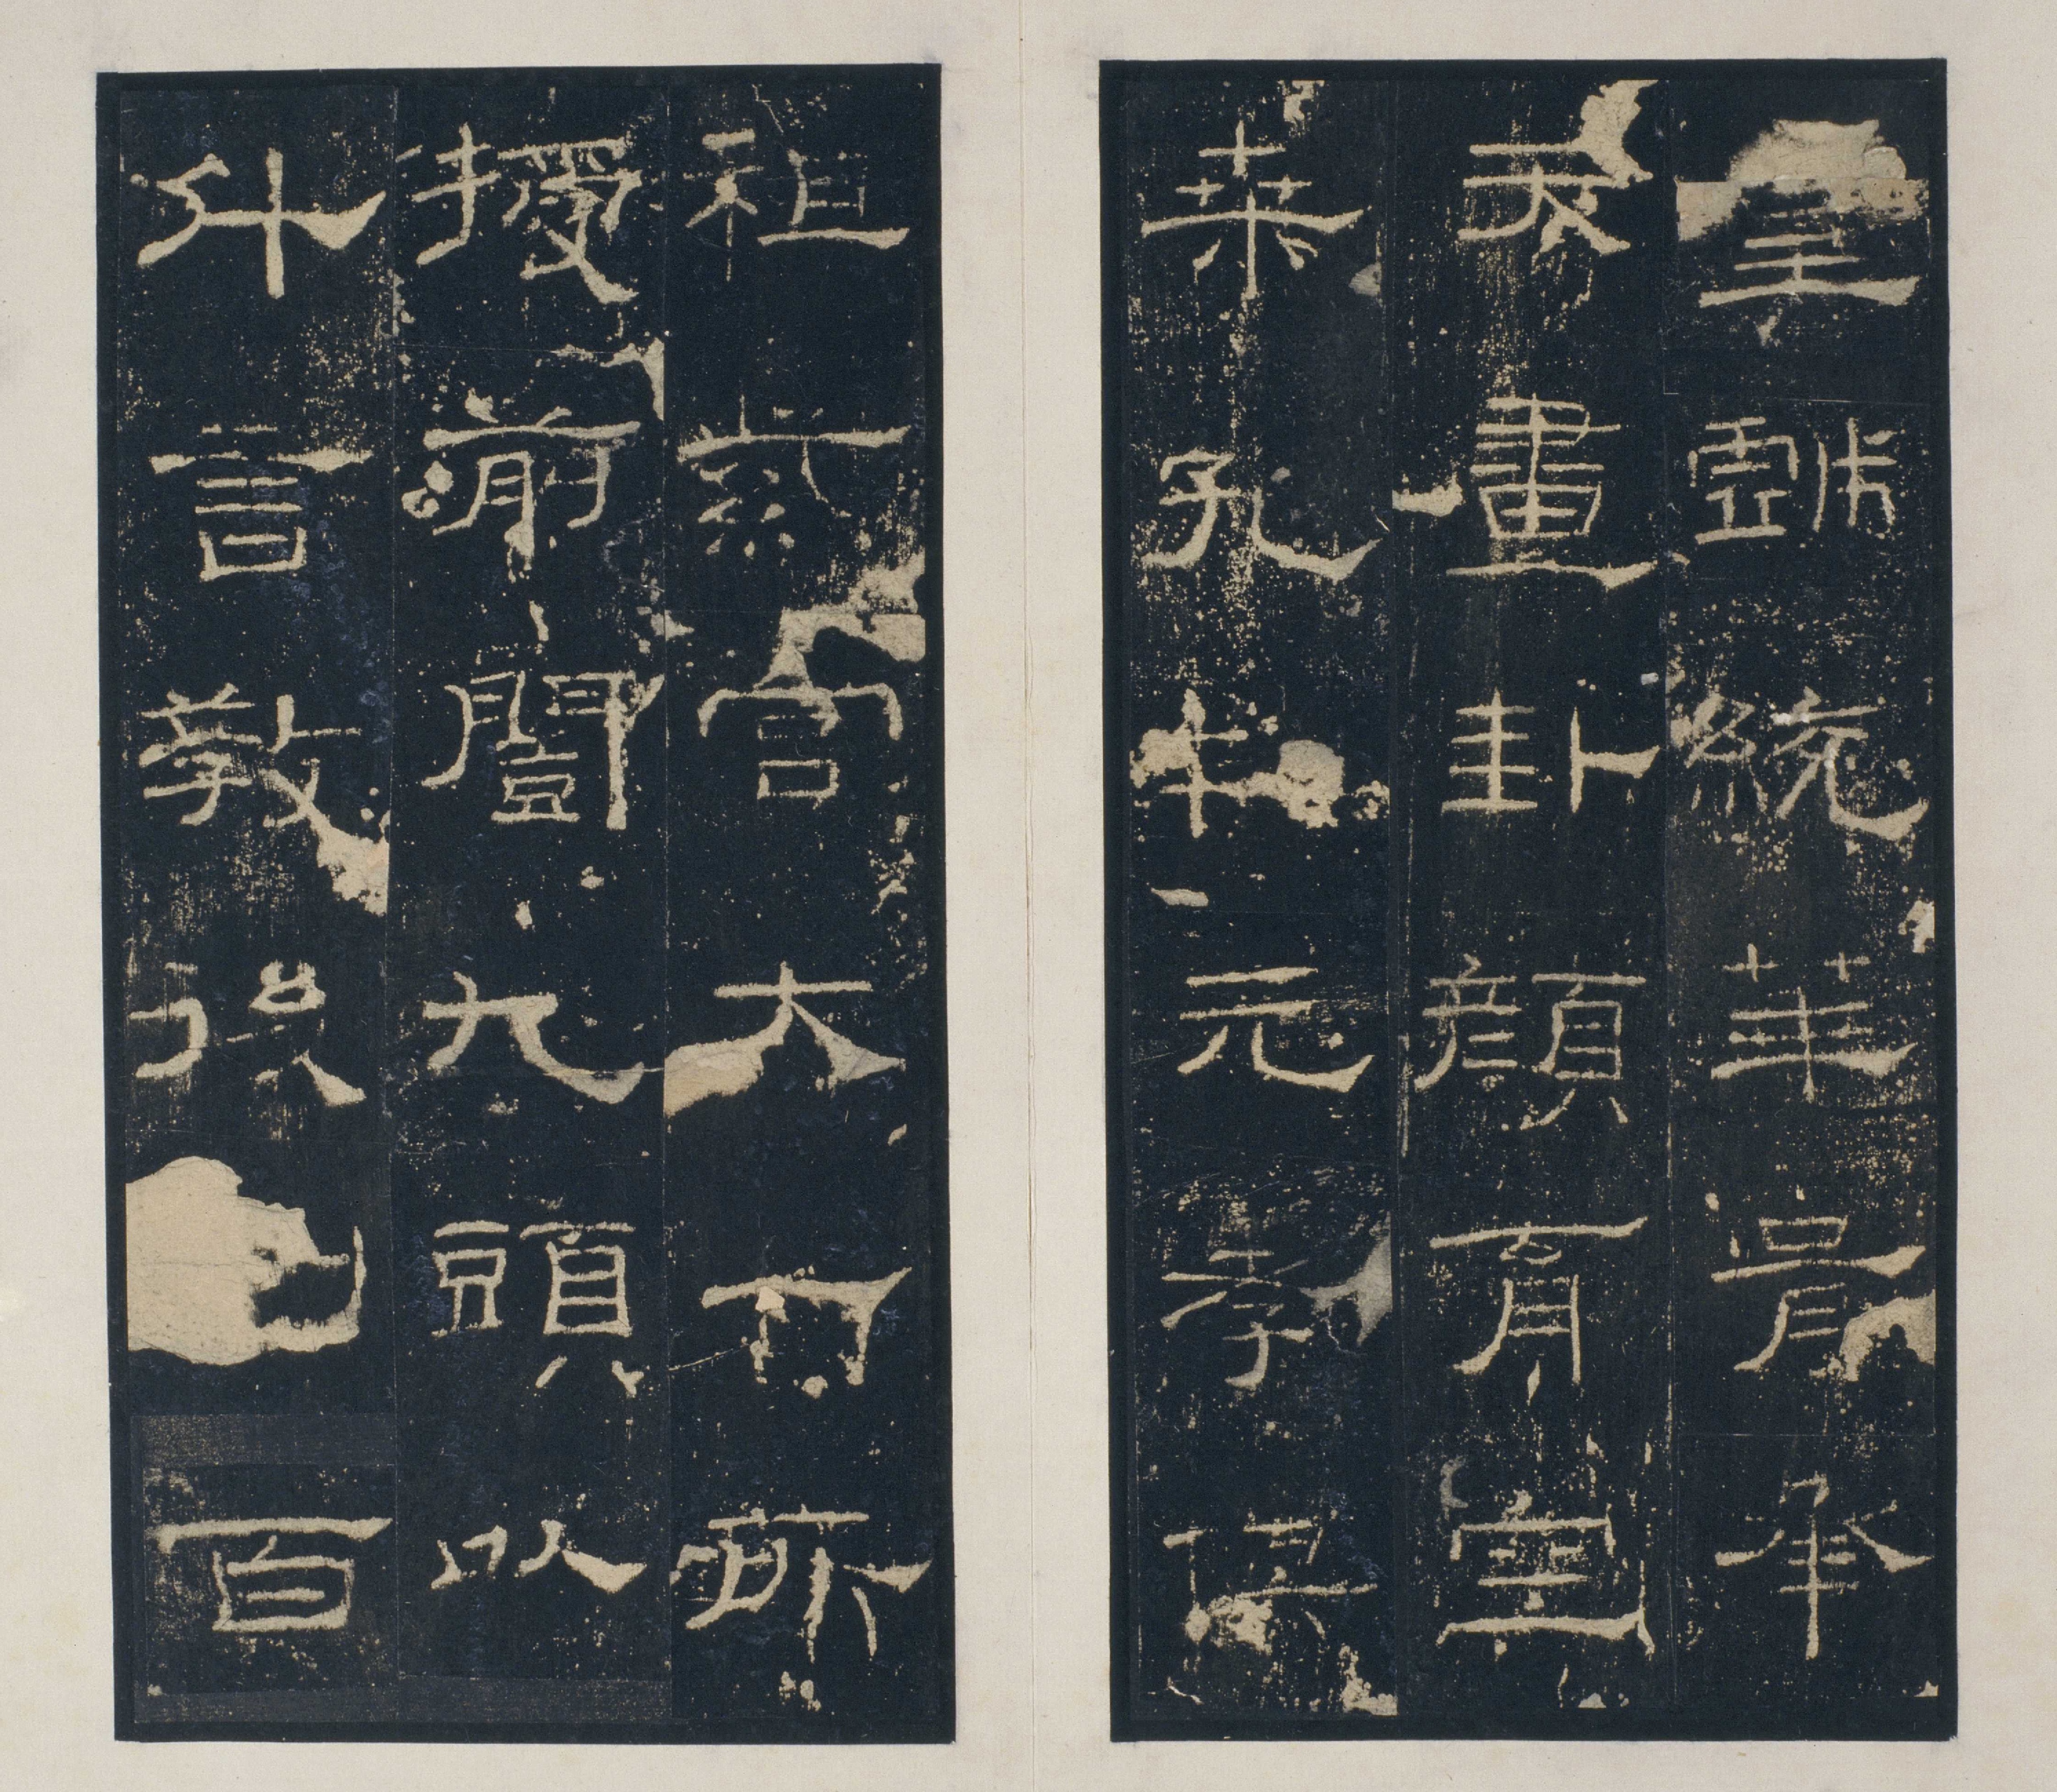 皇戲統華胥承
天畫卦顏育空
桑孔制元孝俱
祖紫宮大一所
授前闓九頭以
升言教後百